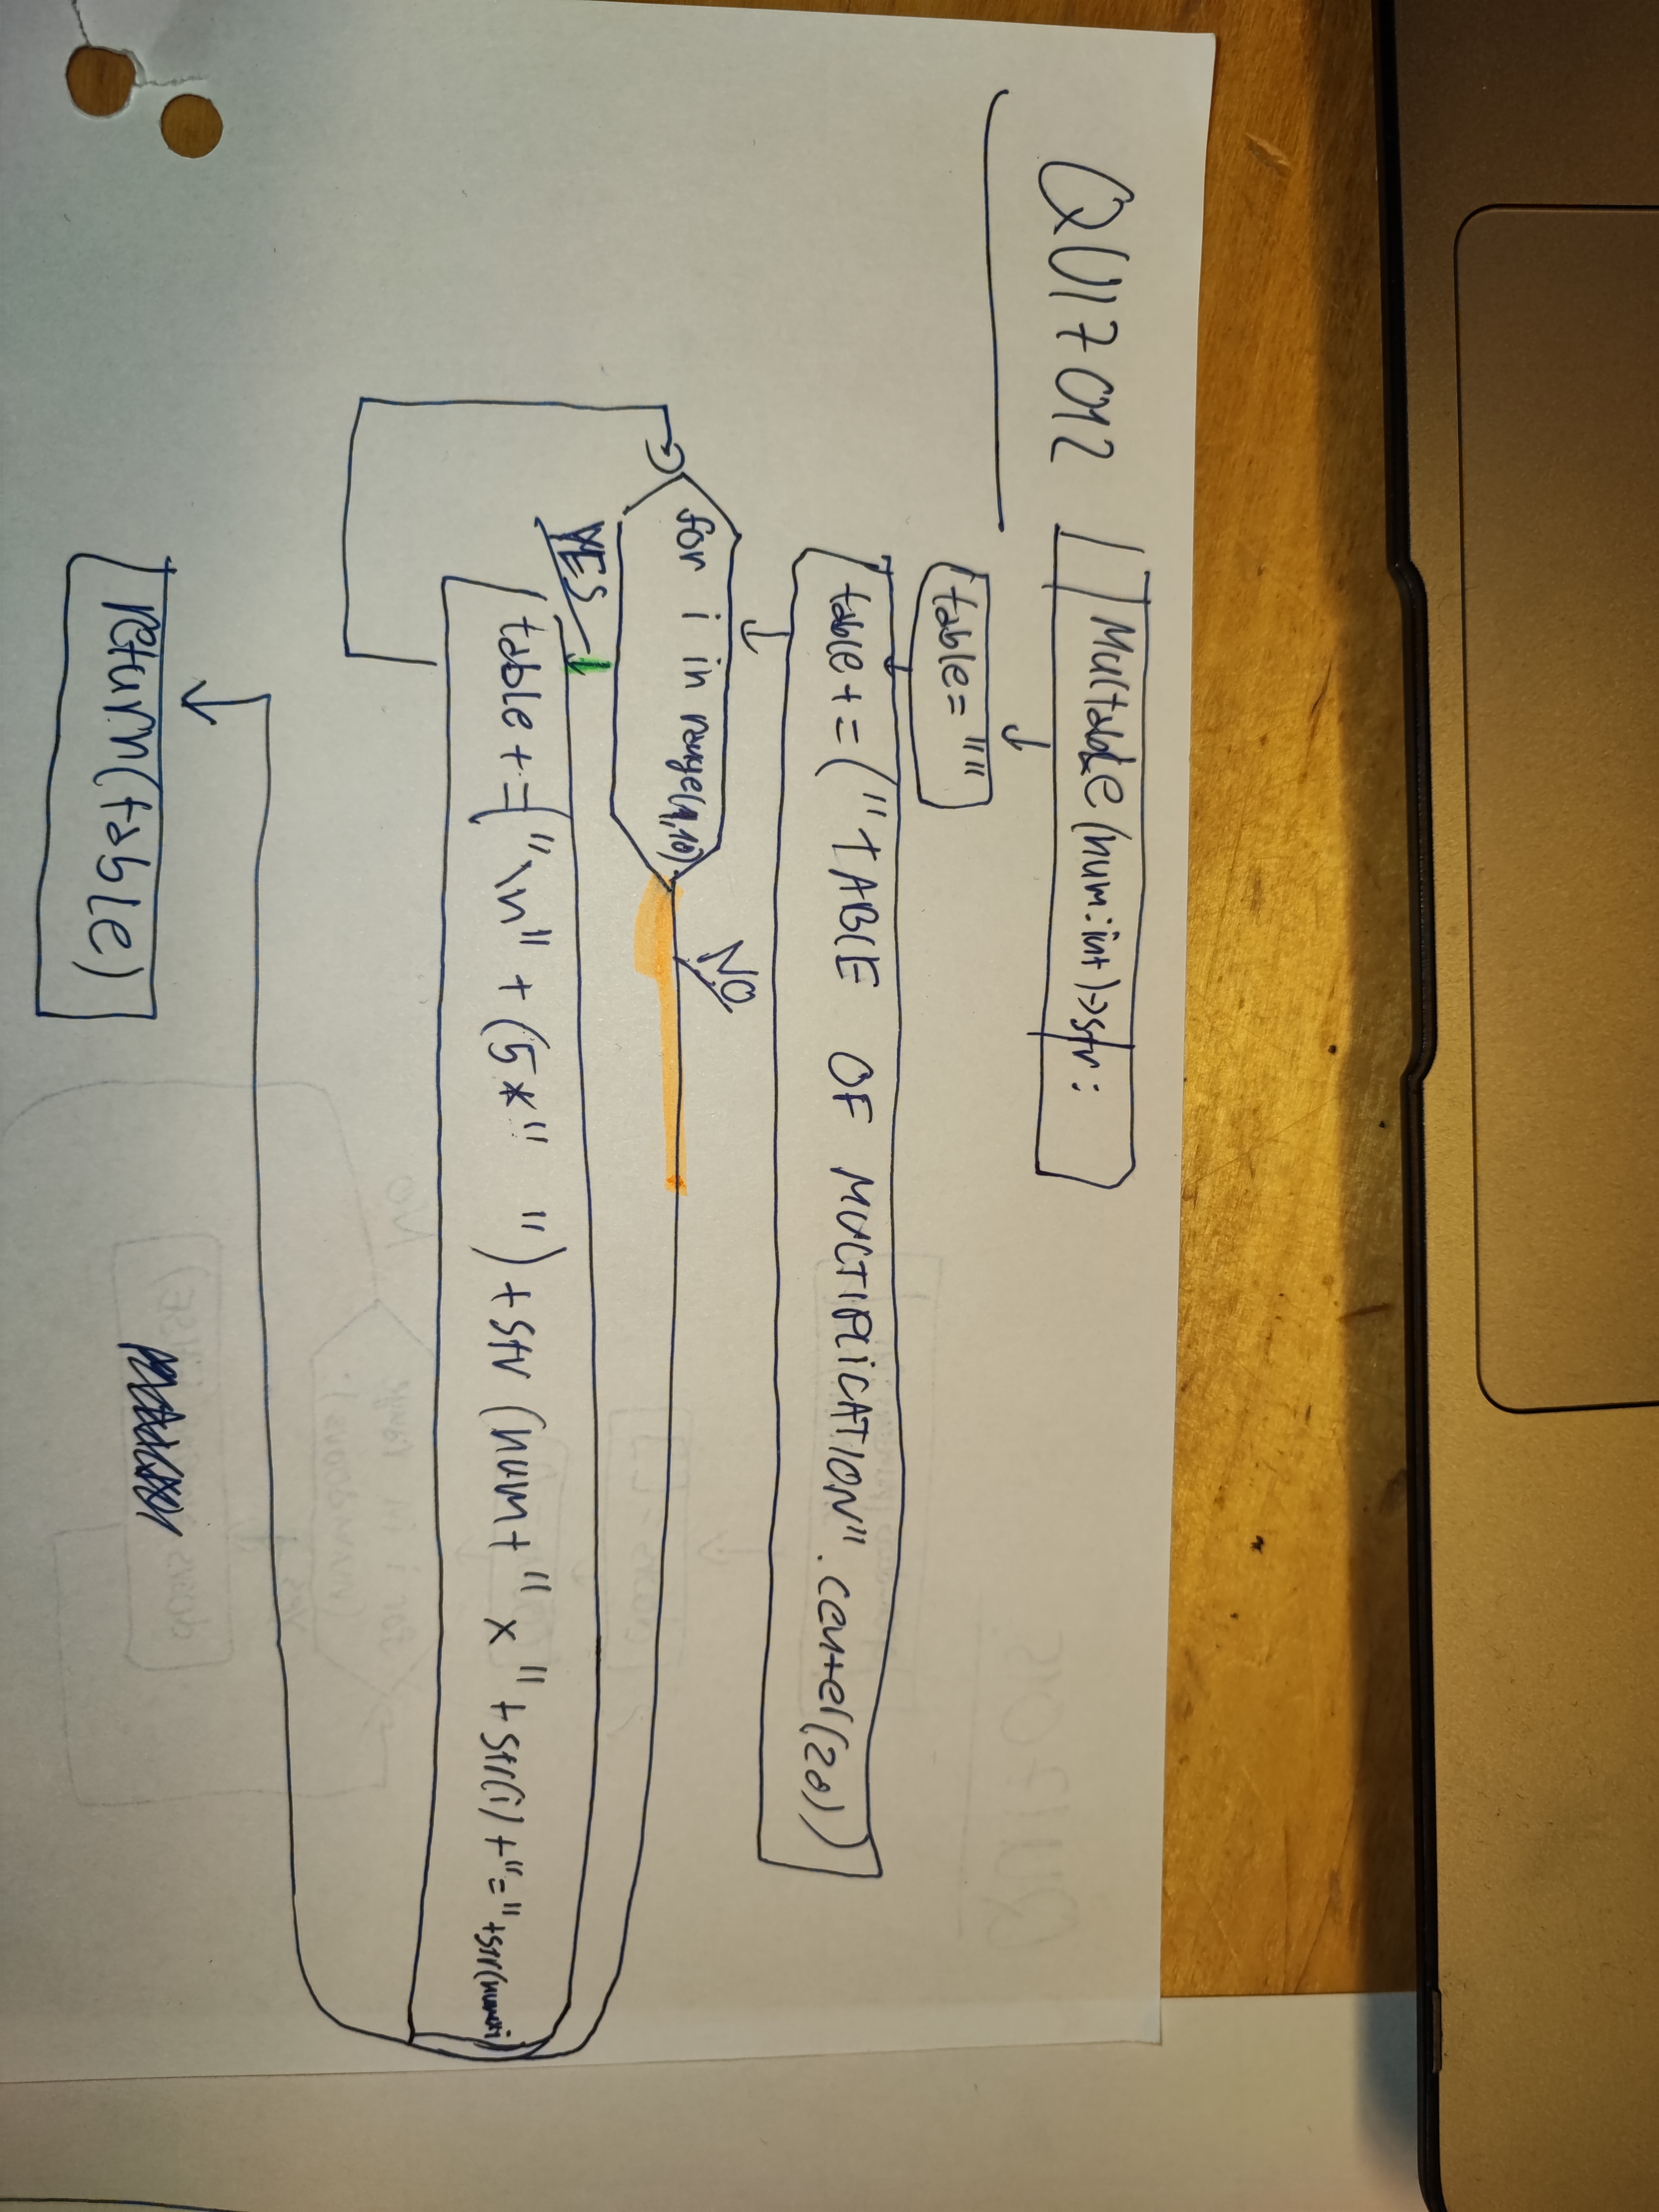 QUIZ 012
Multable(num:int)->str:
table=""
table+=("TABLE OF MULTIPLICATION".center(20))
for i in range(1,10)
NO
YES
table+=("\n"+(5*" ")+str(num+" x "+str(i)+"="+str(num*i)
return(table)